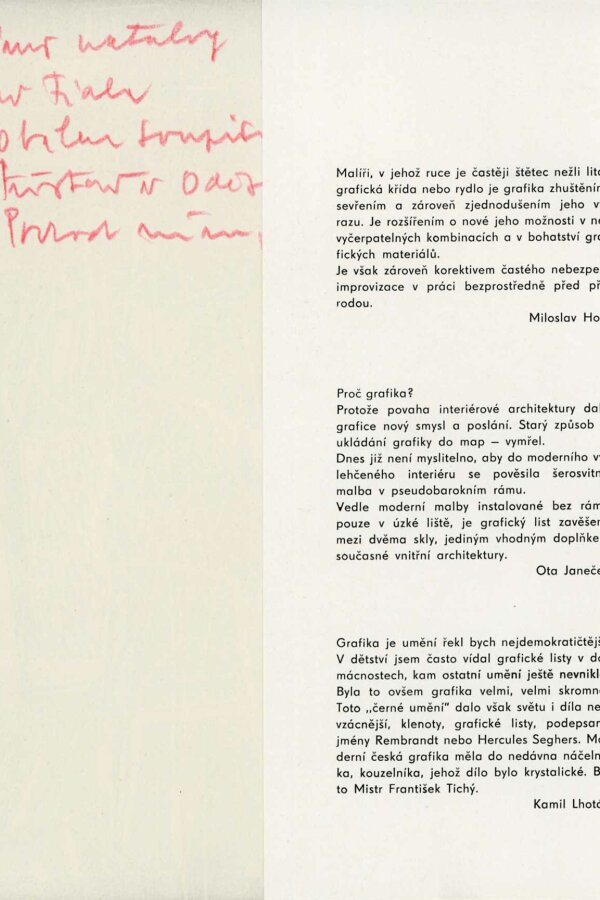 Malíři, v jehož ruce je častěji štětec nežli lito
grafická křída nebo rydlo je grafika zhuštěním
sevřením a zároveň zjednodušením jeho v
razu. Je rozšířením o nové jeho možnosti v ne
vyčerpatelných kombinacích a v bohatství gra
fických materiálů.
Je však zároveň korektivem častého nebezpe
improvizace v práci bezprostředně před př
rodou.
Miloslav Ho
Proč grafika?
Protože povaha interiérové architektury dal
grafice nový smysl a poslání. Starý způsob
ukládání grafiky do map – vymřel.
Dnes již není myslitelno, aby do moderního vy
lehčeného interiéru se pověsila šerosvitn
malba v pseudobarokním rámu.
Vedle moderní malby instalované bez rám
pouze v úzké liště, je grafický list zavěšen
mezi dvěma skly, jediným vhodným doplňke
současné vnitřní architektury.
Ota Janeče
Grafika je umění řekl bych nejdemokratičtějš
V dětství jsem často vídal grafické listy v do
mácnostech, kam ostatní umění ještě nevnikl
Byla to ovšem grafika velmi, velmi skromn
Toto „černé umění" dalo však světu i díla ne
vzácnější, klenoty, grafické listy, podepsan
jmény Rembrandt nebo Hercules Seghers. Mo
derní česká grafika měla do nedávna náčeln
ka, kouzelníka, jehož dílo bylo krystalické. B
to Mistr František Tichý.
Kamil Lhotá